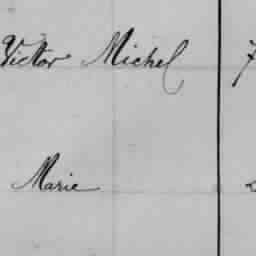 Victor Michel 7
Marie